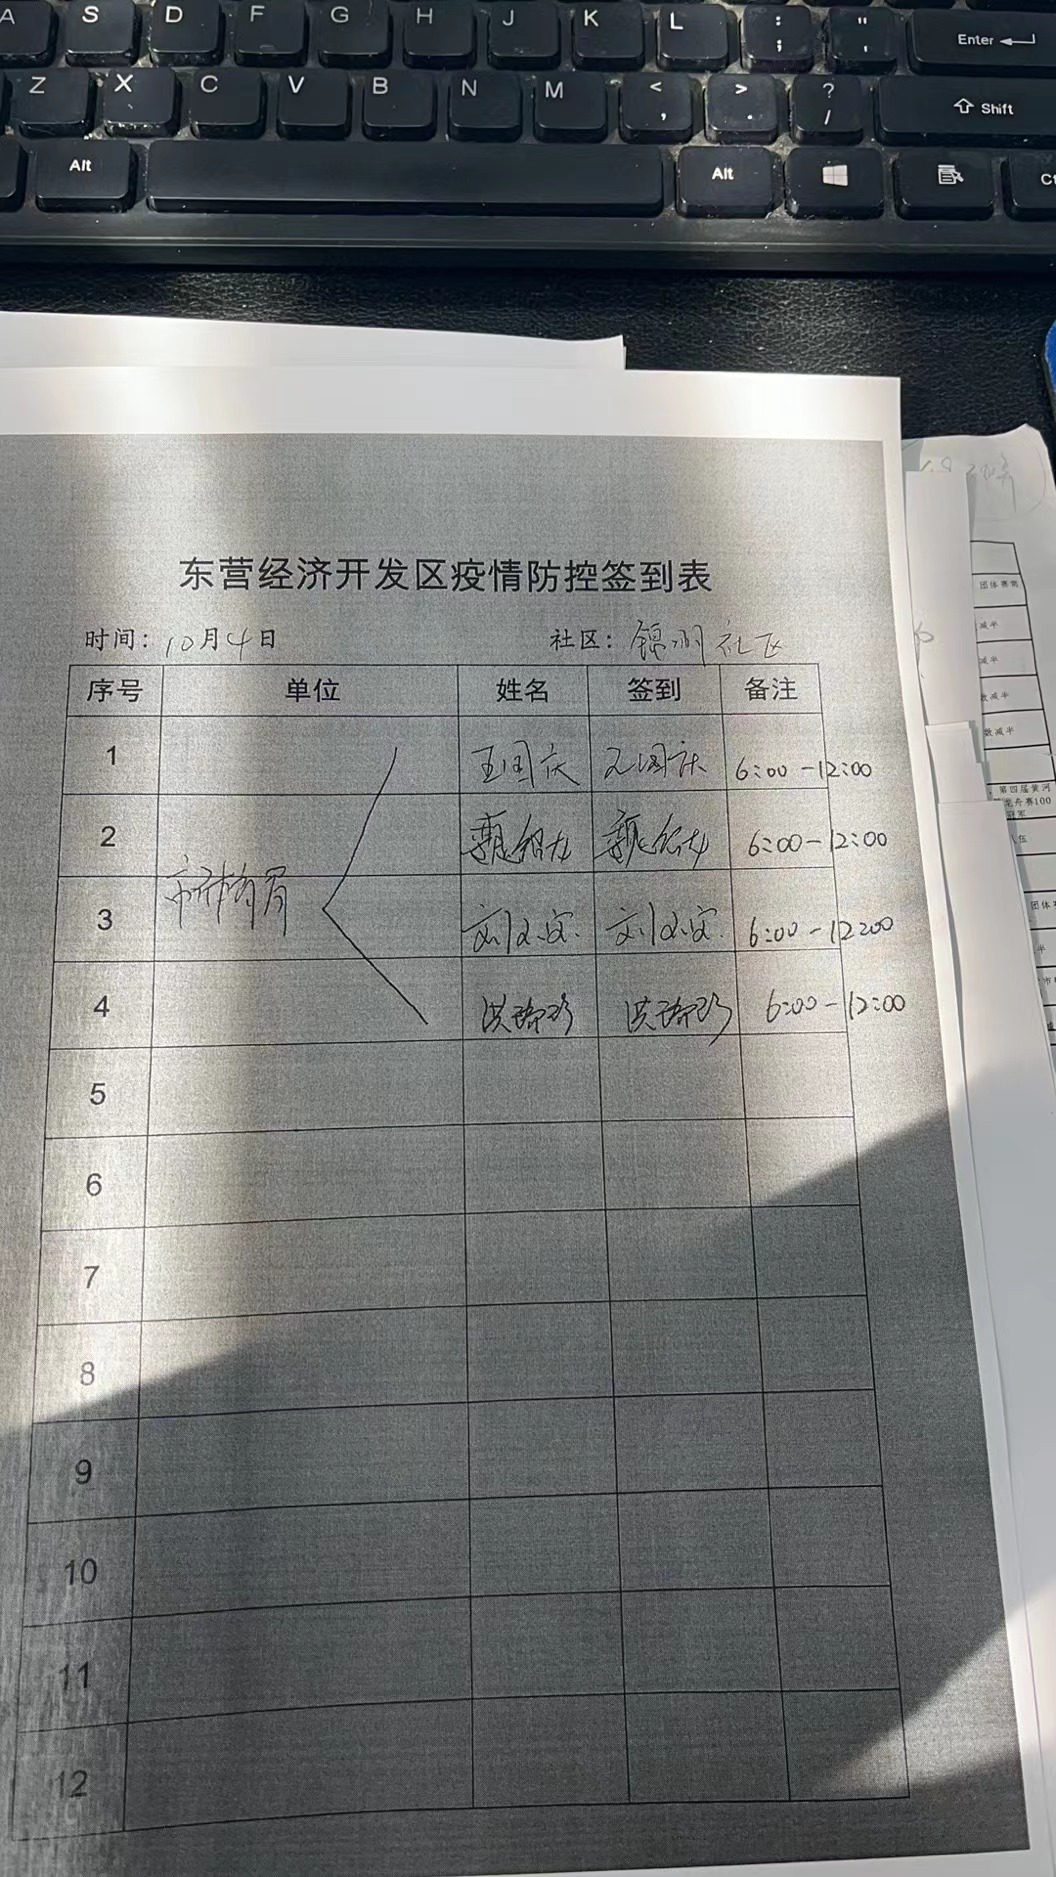 A S D F G H J K L : ; " ' Enter
Z X C V B N M < , > . ? / Shift
Alt Alt Ct
东营经济开发区疫情防控签到表
时间：10月4日 社区：锦湖社区
序号 单位 姓名 签到 备注
1 王国庆 王国庆 6:00-12:00
2 6:00-12:00
市体育局
3 6:00-12:00
4 6:00-12:00
5
6
7
8
9
10
11
12
团体赛需
减半
减半
数减半
数减半
第四届黄河
龙舟赛100
冠军
团体
半